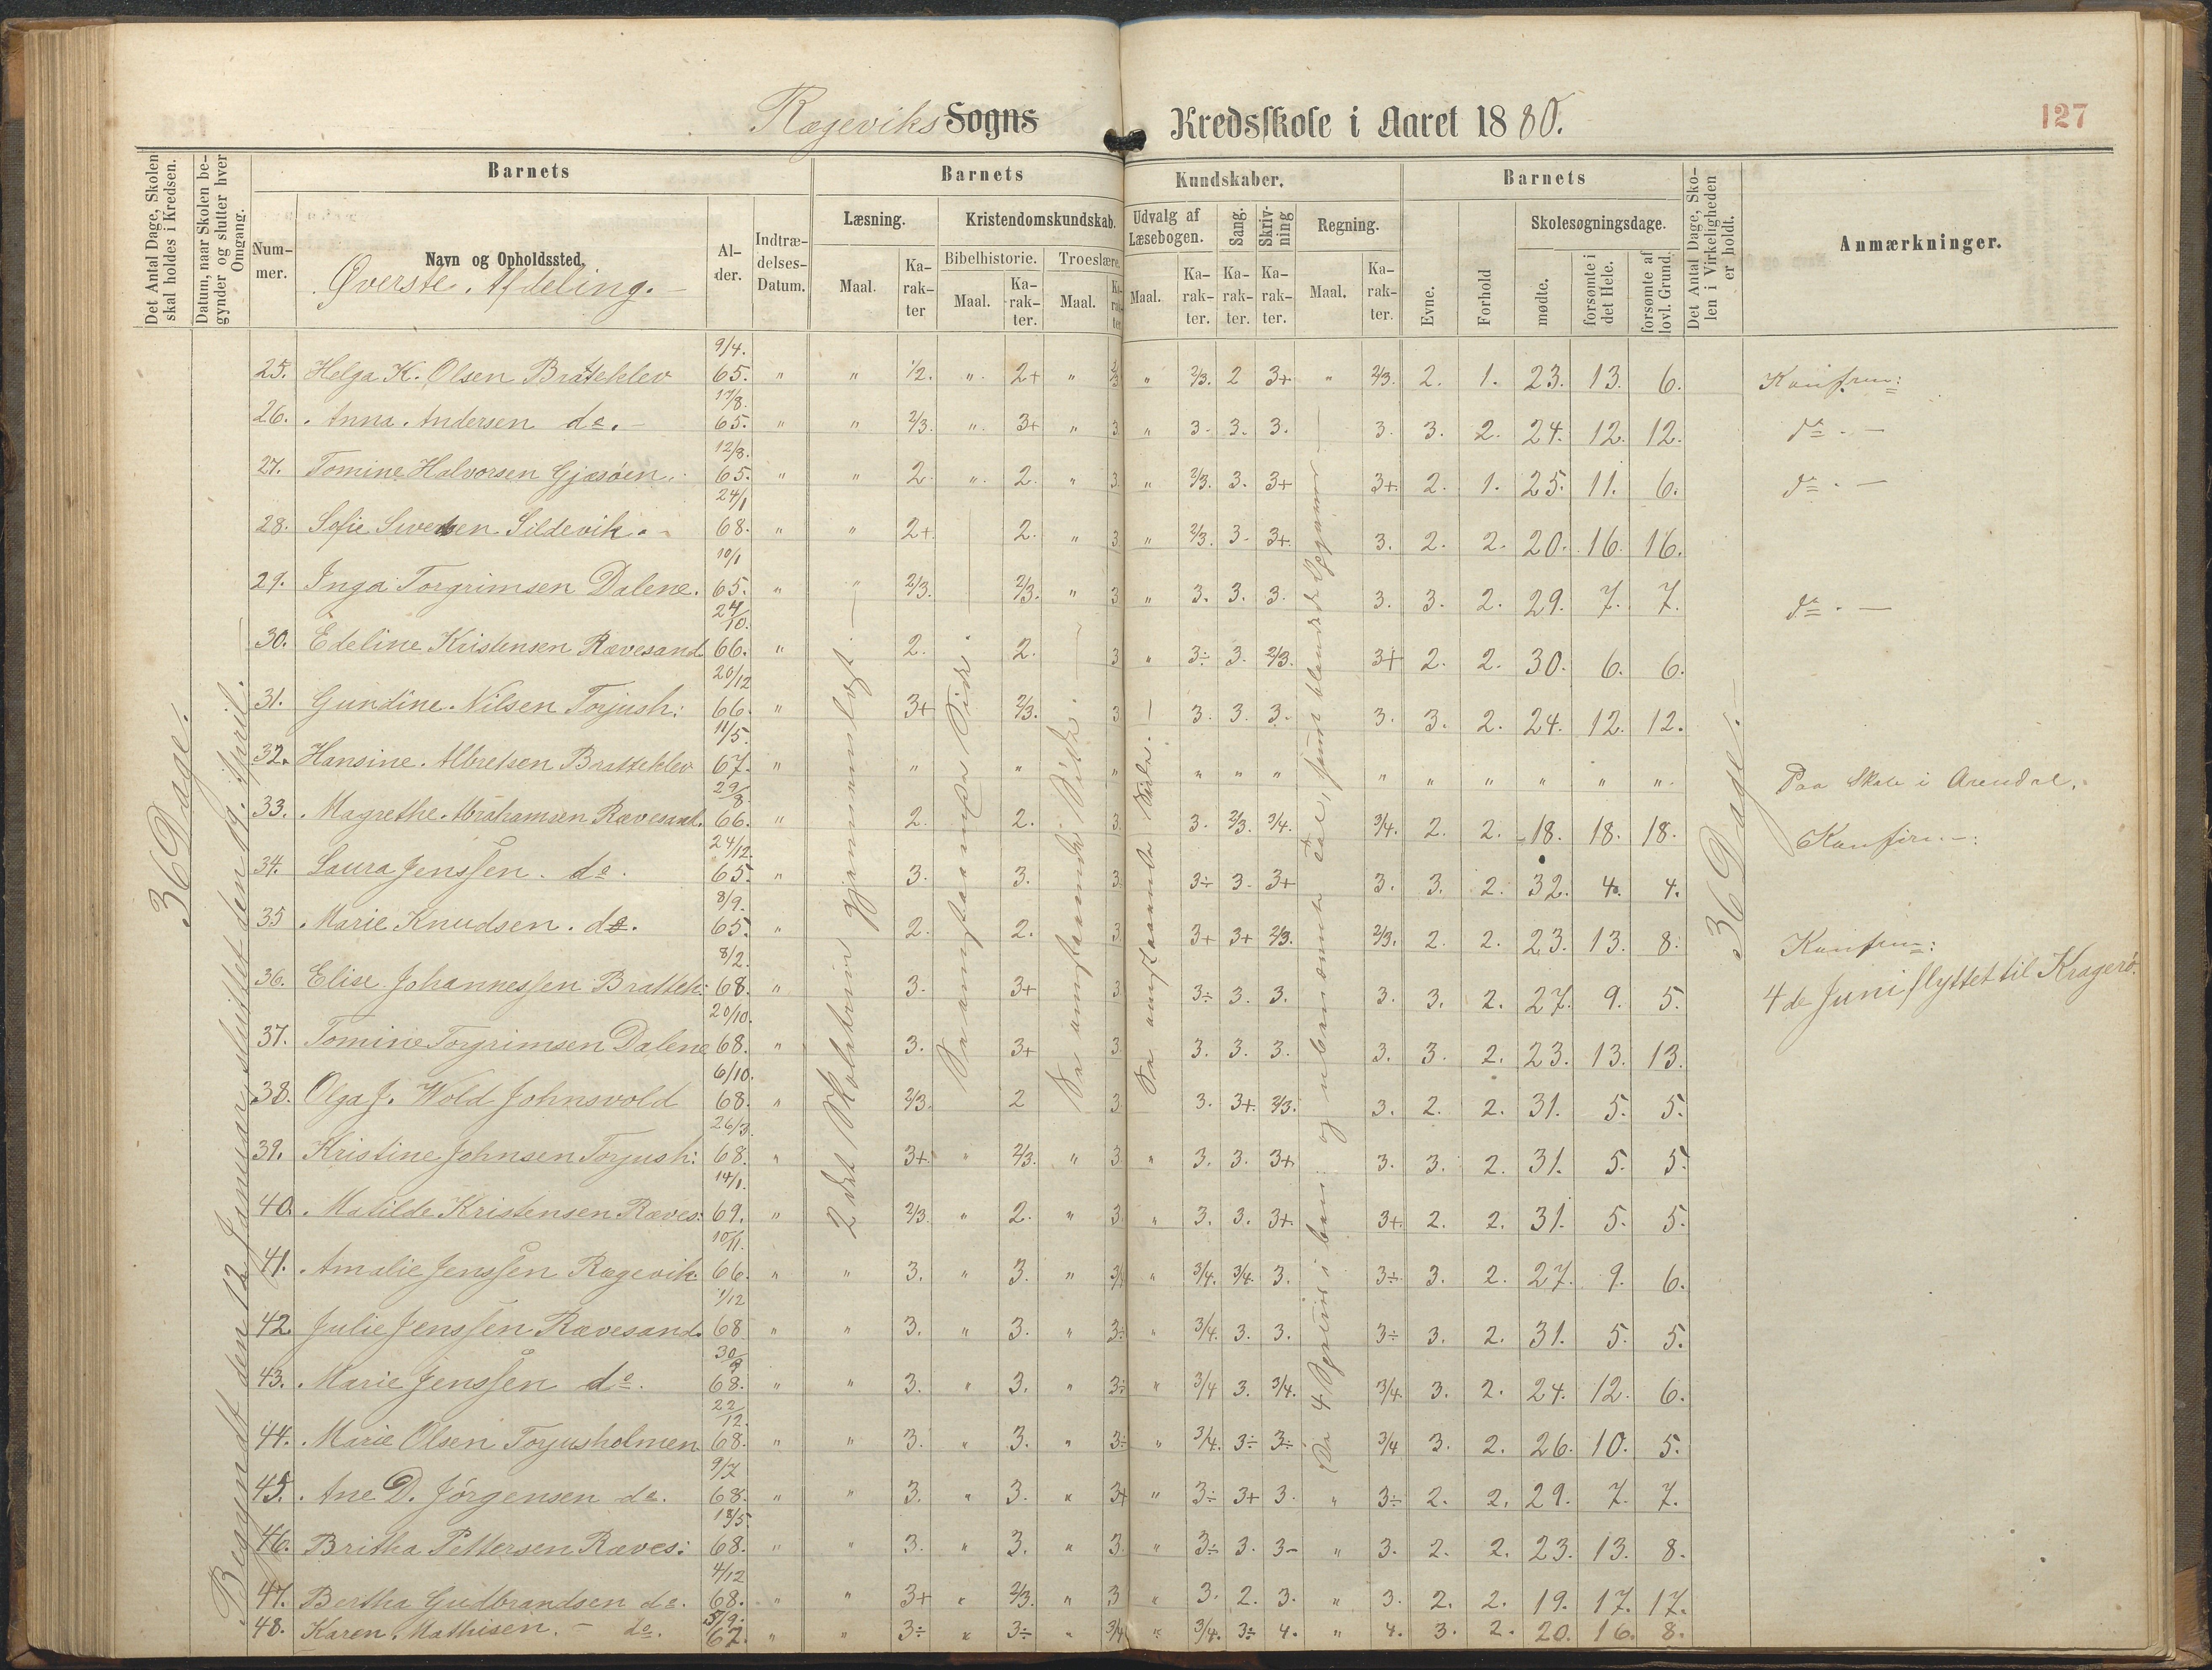 Rægeviks Sogns Kredsskole i Aaret 1880.
127
Det Antal Dage, Skolen skal holdes i Kredsen.
Datum, naar Skolen begynder og slutter hver Omgang.
Barnets
Nummer.
Navn og Opholdssted.
Øverste Afdeling.
Alder.
Indtrædelses-Datum.
Barnets Kundskaber.
Læsning.
Maal.
Karakter
Kristendomskundskab.
Bibelhistorie.
Maal.
Karakter.
Troeslære.
Maal.
Karakter
Udvalg af Læsebogen.
Maal.
Karakter.
Sang.
Karakter.
Skrivning
Karakter.
Regning.
Maal.
Karakter.
Barnets
Evne.
Forhold
Skolesøgningsdage.
mødte.
forsømte i det Hele.
forsømte af lovl. Grund.
Det Antal Dage, Skolen i Virkeligheden er holdt.
Anmærkninger.
36 Dage.
Begyndt den 12 Januar, sluttet den 19. April.
2det Skoletrin gjennemlæst.
36 Dage.
25. Helga K. Olsen Bratteklev 9/4. 65. " " 1/2. " 2+ " 2/3 " 2/3. 2 3+ " 2/3. 2. 1. 23. 13. 6. Konfirm:
26. Anna Andersen do. 17/8. 65. " " 2/3. " 3+ " 3. " 3. 3. 3. 3. 3. 2. 24. 12. 12. do. —
27. Tomine Halvorsen Gjæsøen. 12/8. 65. " " 2. " 2. " 3. " 2/3. 3. 3+ 3+. 2. 1. 25. 11. 6. do. —
28. Sofie Sildevik. 24/1 68. " " 2+. 2. " 3. " 2/3. 3. 3+. 3. 2. 2. 20. 16. 16.
29. Inga Torgrimsen Dalene. 10/1 65. " " 2/3. 2/3. " 3 " 3. 3. 3. 3. 3. 2. 29. 7. 7. do. —
30. Edeline Kristensen Rævesand 24/10. 66. " 2. 2. 3 " 3÷ 3. 2/3. 3+ 2. 2. 30. 6. 6.
31. Gundine Nilsen Torjush: 20/12 66. " 3+ 2/3. 3 3. 3. 3. 3. 3. 2. 24. 12. 12.
32. Hansine Albretsen Bratteklev 11/5. 67. " " " " " " " " " " " " " Paa Skole i Arendal.
33. Magrethe Abrahamsen Rævesand. 29/8 66. " 2. 2. 3. 3. 2/3. 3/4. 3/4. 2. 2. 18. 18. 18. Konfirm:
34. Laura Jenssen. do. 24/12. 65. " 3. 3. 3. 3÷ 3. 3+ 3. 3. 2. 32. 4. 4.
35 Marie Knudsen. do. 8/9. 65. " 2. 2. 3. 3+ 3+ 2/3. 2/3. 2. 2. 23. 13. 8. Konfirm:
36. Elise Johannessen Brattek: 8/2. 68. " 3. 3+ 3. 3÷ 3. 3. 3. 3. 2. 27. 9. 5. 4de Juni flyttet til Kragerø.
37. Tomine Torgrimsen Dalene 20/10. 68. " 3. 3+ 3. 3. 3. 3. 3. 3. 2. 23. 13. 13.
38. Olga J. Wold Johnsvold 6/10. 68. " 2/3. 2 3 3. 3+. 2/3. 3. 2. 2. 31. 5. 5.
39. Kristine Johnsen Torjush: 26/3. 68. " 3+. " 2/3. " 3. " 3. 3. 3+ 3. 3. 2. 31. 5. 5.
40. Matilde Kristensen Ræves: 14/1. 69. " 2/3. " 2. " 3. " 3. 3. 3+. 3+. 2. 2. 31. 5. 5.
41. Amalie Jenssen Rægevik. 10/11. 66. " " 3. " 3. " 3/4 " 3/4. 3/4. 3. 3÷ 3. 2. 27. 9. 6.
42. Julie Jenssen Rævesand. 1/12 68 " " 3. " 3. " 3÷ " 3/4. 3. 3. 3÷ 3. 2. 31. 5. 5.
43. Marie Jenssen do. 30/9 68. " " 3. " 3. " 3÷ " 3/4 3. 3/4. 3/4 3. 2. 24. 12. 6.
44. Marie Olsen Torjusholmen 22/12. 68. " " 3. " 3. " 3÷ " 3/4. 3÷ 3÷ 3/4 3. 2. 26. 10. 5.
45. Ane D. Jørgensen do. 9/7 68. " " 3. " 3. " 3+ " 3÷ 3+ 3. " 3÷ 2. 2. 29. 7. 7.
46. Britha Pettersen Ræves: 13/5. 68. " " 3. " 3. " 3. " 3÷ 3. 3- " 3. 2. 2. 23. 13. 8.
47. Bertha Gudbrandsen do. 4/12 68. " " 3+ " 2/3. " 3 " 3. 2. 3. " 3. 2. 2. 19. 17. 17.
48. Karen Mathisen. — do. 5/9. 67. " " 3÷ " 3÷ " 3/4 " 3/4. 3÷ 4. " 4. 3. 2. 20. 16. 8.